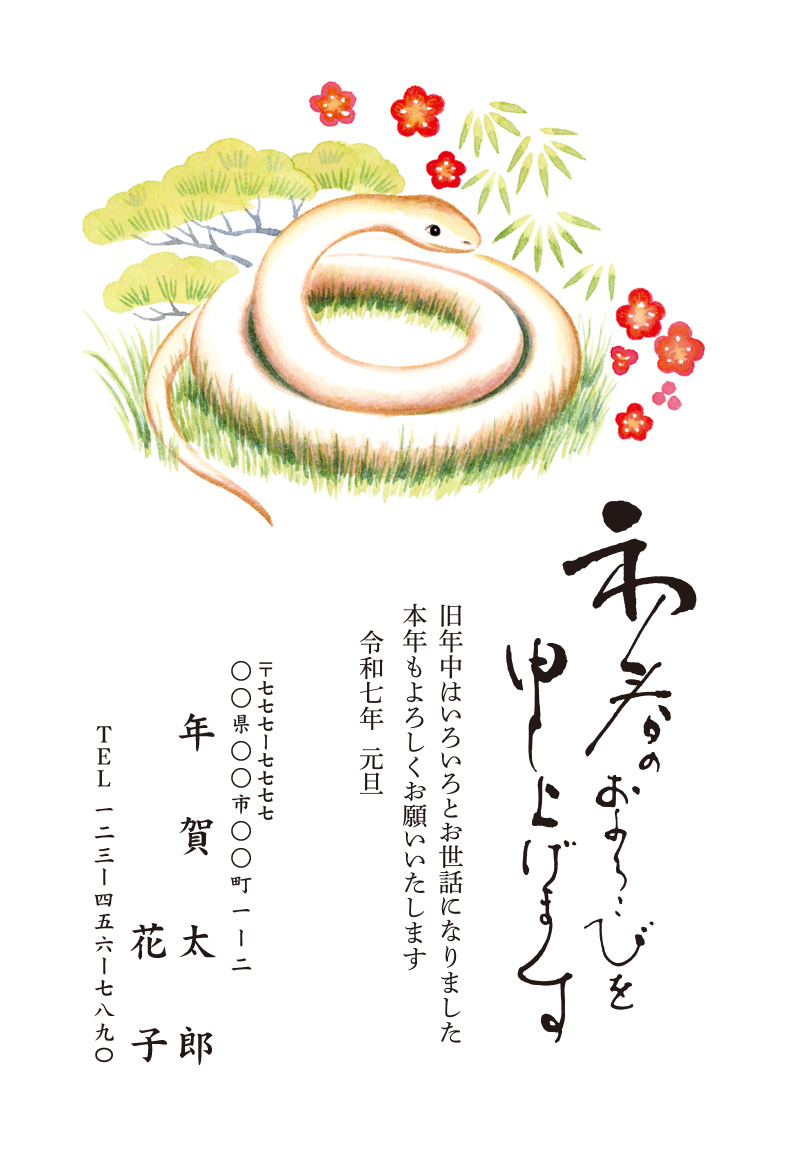 初春のおよろこびを
申し上げます
旧年中はいろいろとお世話になりました
本年もよろしくお願いいたします
令和七年 元旦
〒七七七ー七七七七
〇〇県〇〇市〇〇町一ー二
年賀太郎
花子
TEL 一二三ー四五六ー七八九〇